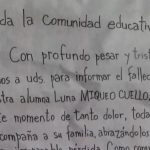 da la Comunidad educativ
Con profundo pesar y trist
os a uds. para informar el fallec
tra alumna Luna MIQUEO CUELLO,
te momento de tanto dolor, toda
compaña a su familia, abrazándolos
pérdida. Como com